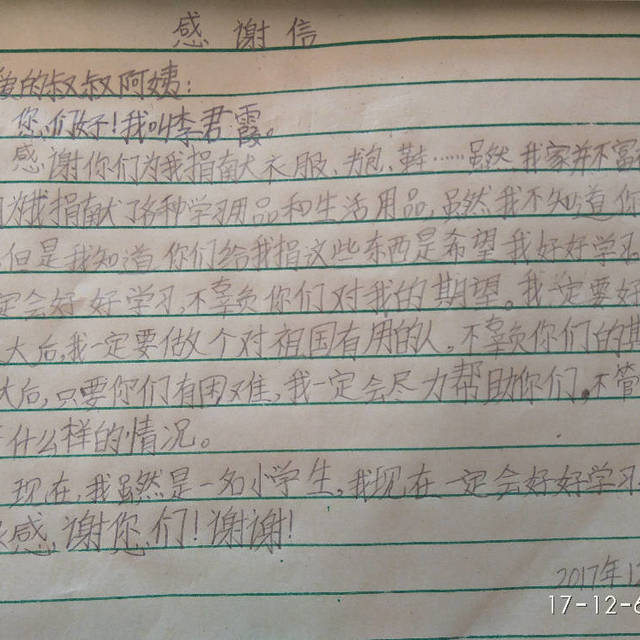 感谢信
的叔叔阿姨：
您们好！我叫李君霞。
感谢你们为我捐献衣服、书包、鞋……虽然我家并不富
为我捐献了各种学习用品和生活用品，虽然我不知道你
但是我知道你们给我捐这些东西是希望我好好学习
定会好好学习，不辜负你们对我的期望。我一定要好
大后，我一定要做个对祖国有用的人，不辜负你们的期
大后，只要你们有困难，我一定会尽力帮助你们，不管
什么样的情况。
现在，我虽然是一名小学生，我现在一定会好好学习
感谢您们！谢谢！
2017年12
17-12-6